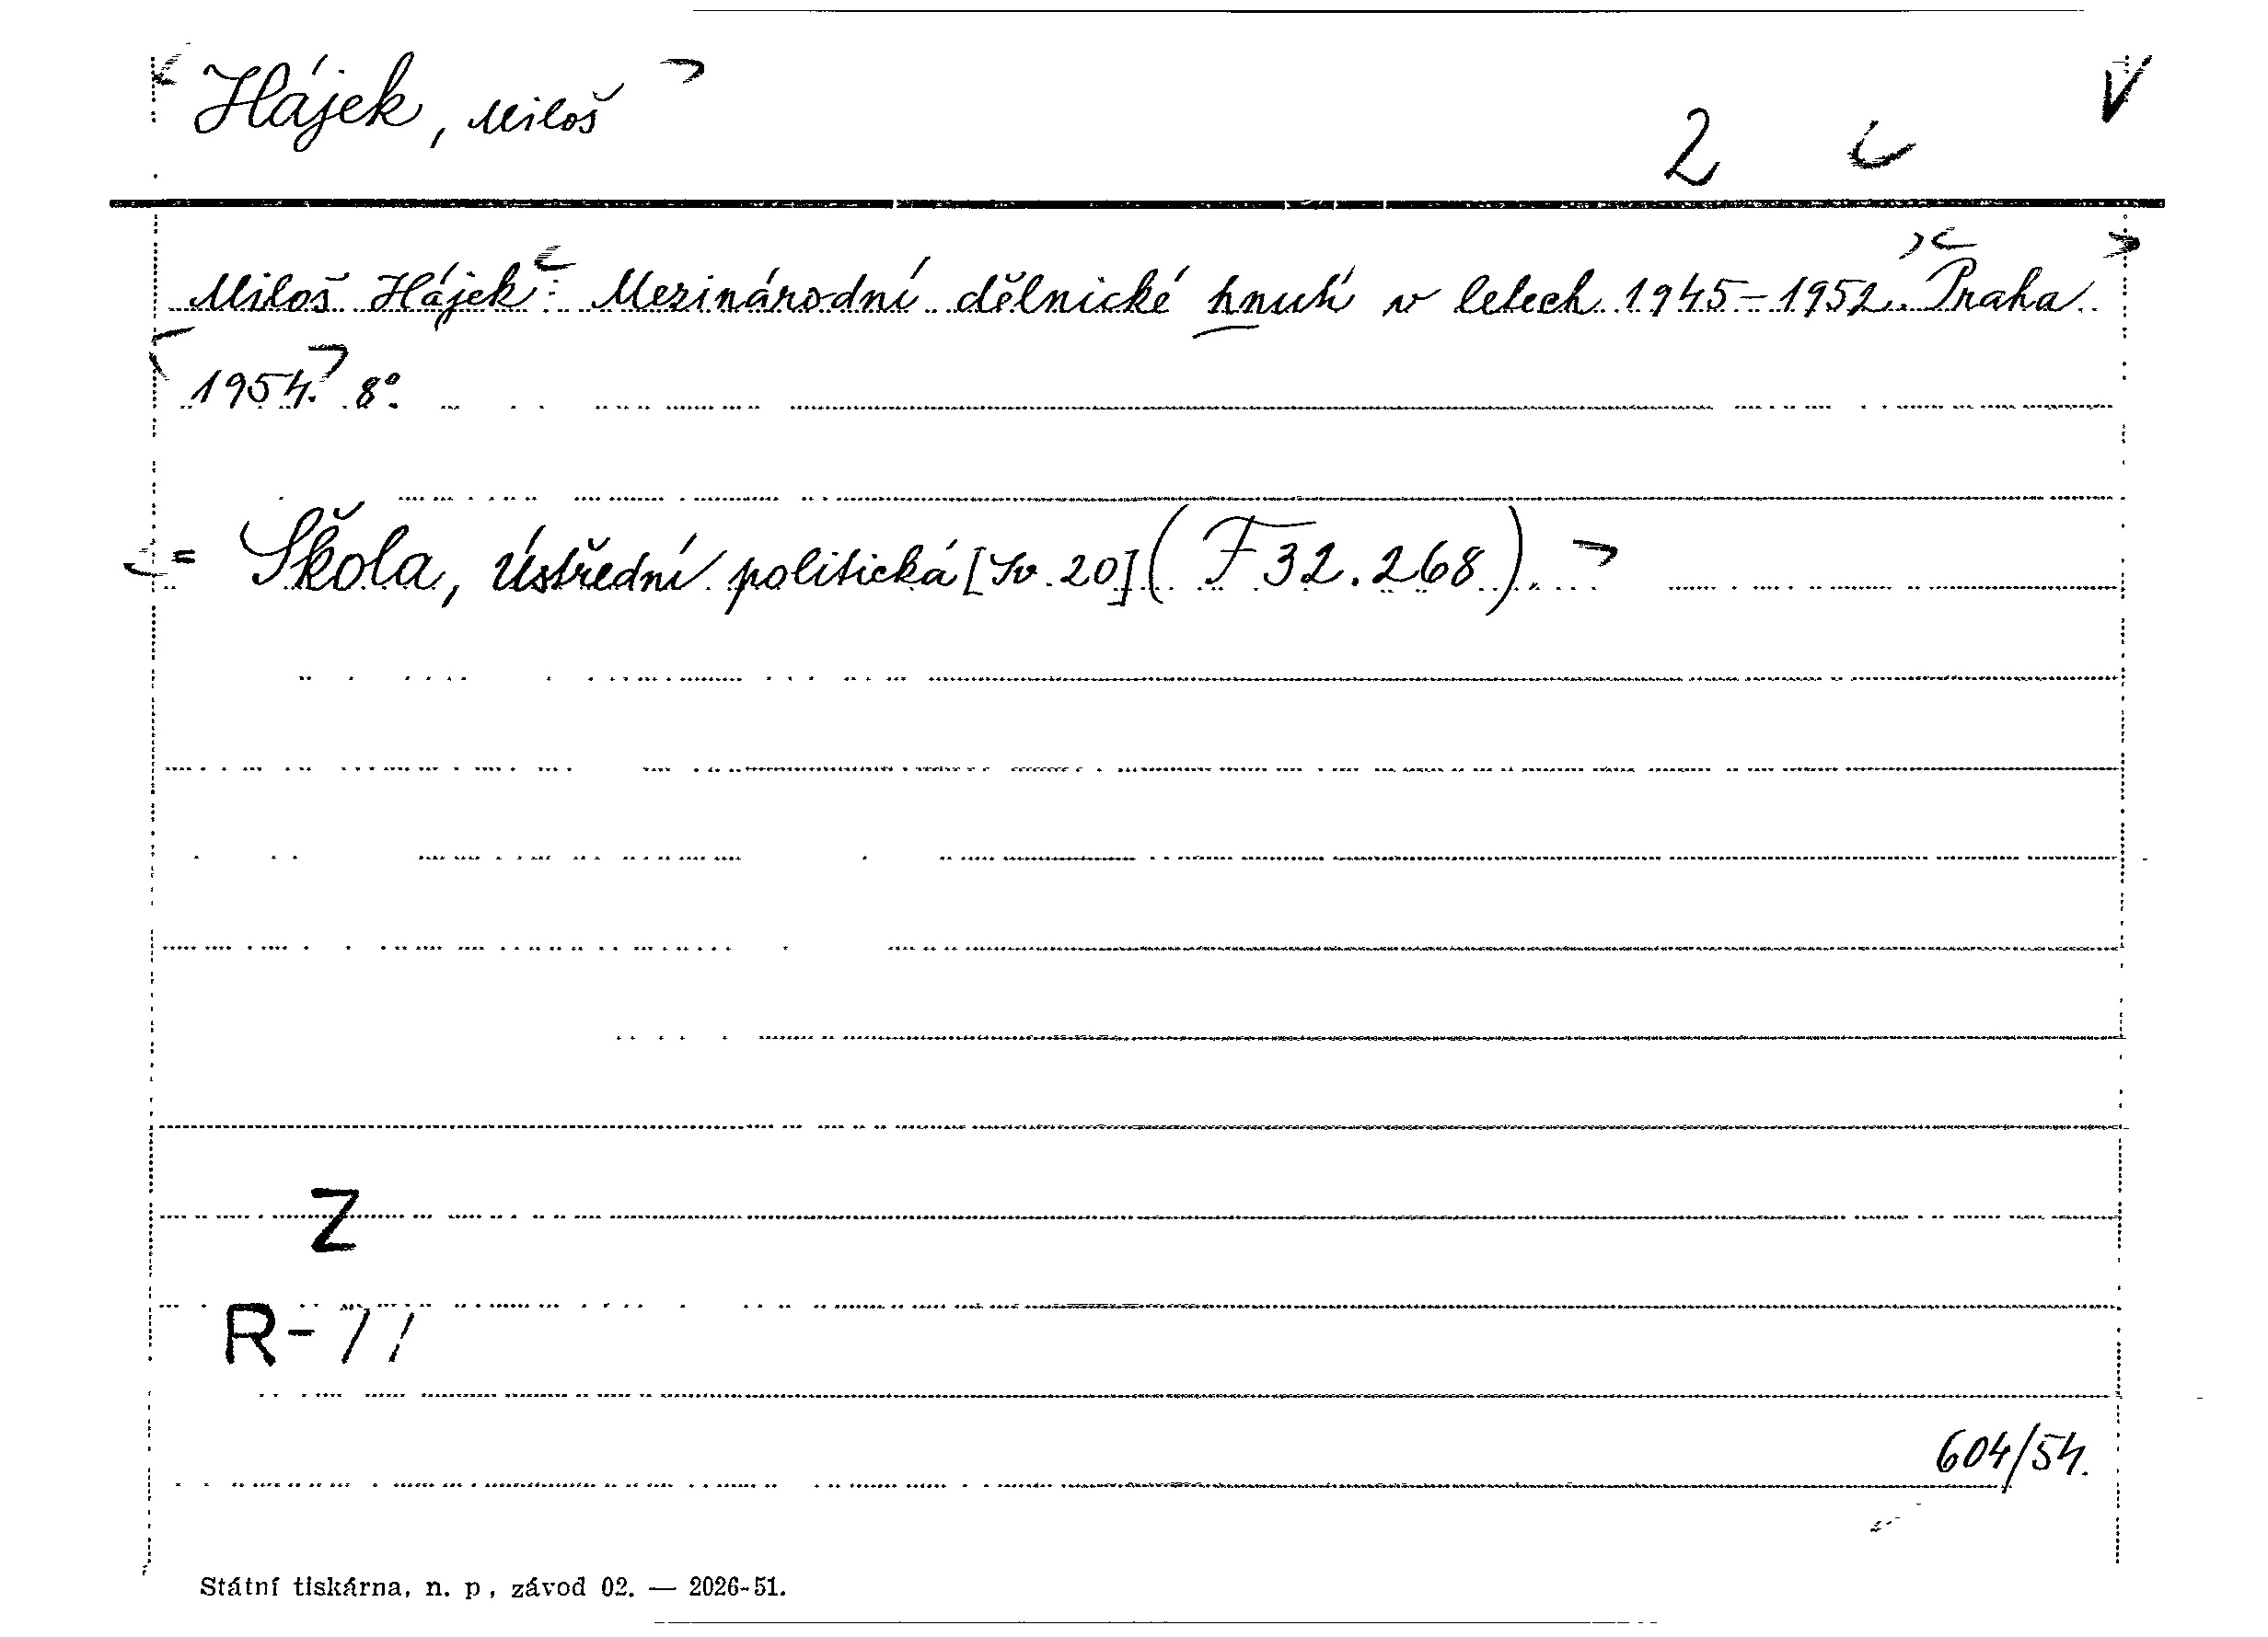 Hájek, Miloš
2 V
Miloš Hájek: Mezinárodní dělnické hnutí v letech 1945-1952. Praha
1954. 8°.
= Škola, Ústřední politická [Sv. 20] (F 32.268).
Z
R-77
604/54.
Státní tiskárna, n. p., závod 02. — 2026-51.